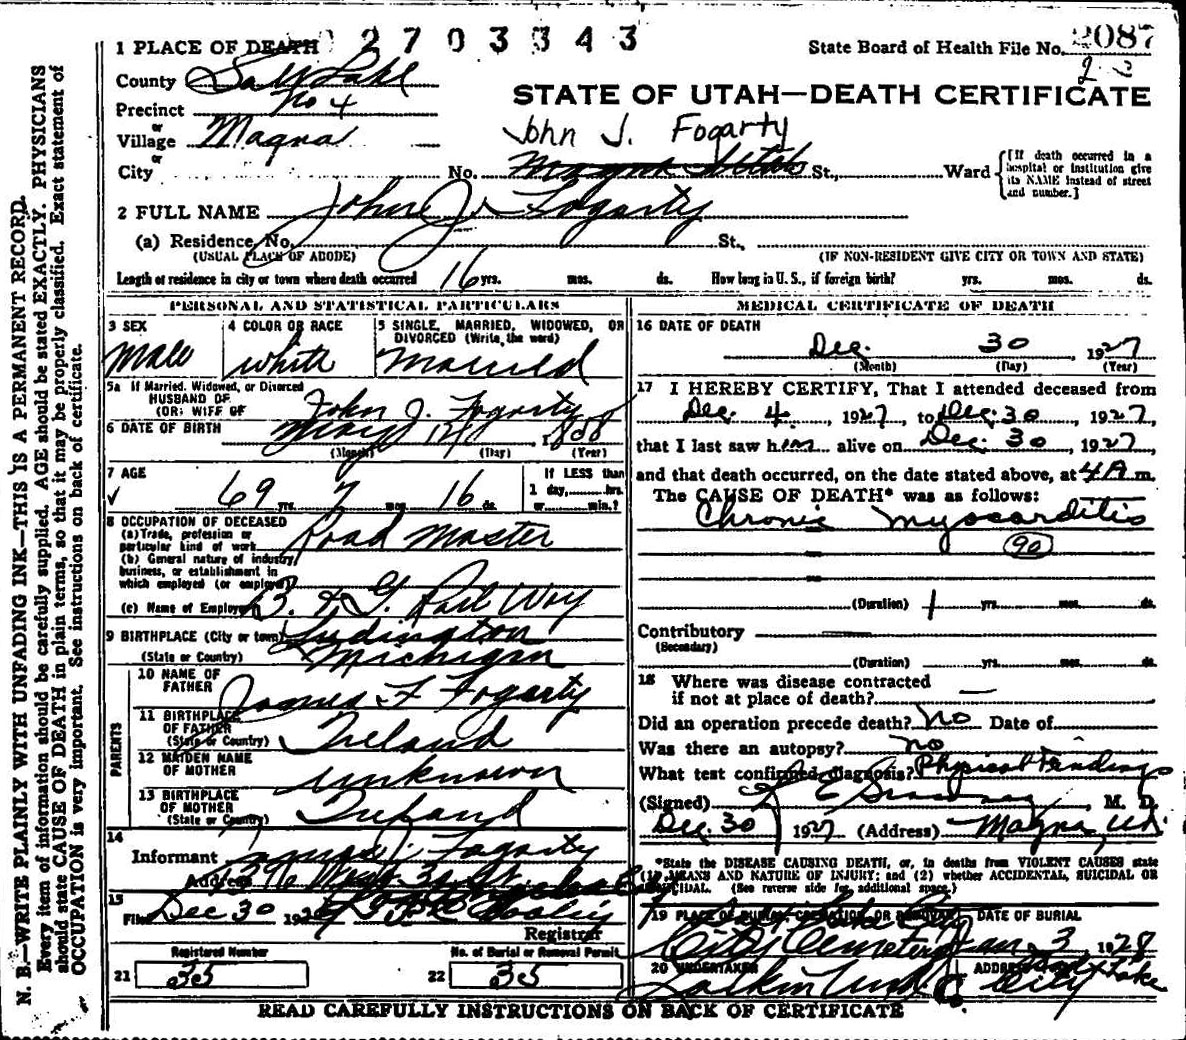 2703343
1 PLACE OF DEATH
State Board of Health File No. 2087
County Salt Lake
Precinct No 4
STATE OF UTAH—DEATH CERTIFICATE
or
Village Magna
John J. Fogarty
or
City No. Magna Utah St., Ward
[If death occurred in a hospital or institution give its NAME instead of street and number.]
2 FULL NAME John J. Fogarty
(a) Residence, No. St.,
(USUAL PLACE OF ABODE) (IF NON-RESIDENT GIVE CITY OR TOWN AND STATE)
Length of residence in city or town where death occurred 16 yrs. mos. ds. How long in U.S., if foreign birth? yrs. mos. ds.
PERSONAL AND STATISTICAL PARTICULARS
3 SEX
Male
4 COLOR OR RACE
White
5 SINGLE, MARRIED, WIDOWED, OR DIVORCED (Write the word)
Married
5a If Married, Widowed, or Divorced
HUSBAND OF
(OR) WIFE OF John J. Fogarty
6 DATE OF BIRTH May 14, 1858
(Month) (Day) (Year)
7 AGE
69 yrs. 7 mos. 16 ds.
If LESS than
1 day, hrs.
or min.?
8 OCCUPATION OF DECEASED
(a) Trade, profession or
particular kind of work Road Master
(b) General nature of industry,
business, or establishment in
which employed (or employer)
(c) Name of Employer B. & G. Rail Way
9 BIRTHPLACE (City or town) Ludington
(State or Country) Michigan
PARENTS
10 NAME OF
FATHER James F Fogarty
11 BIRTHPLACE
OF FATHER
(State or Country) Ireland
12 MAIDEN NAME
OF MOTHER Unknown
13 BIRTHPLACE
OF MOTHER
(State or Country) Ireland
14
Informant J. Fogarty
Address
15
Filed Dec 30 192
Registrar
Registered Number
21 35
No. of Burial or Removal Permit
22 35
MEDICAL CERTIFICATE OF DEATH
16 DATE OF DEATH
Dec. 30, 1927
(Month) (Day) (Year)
17 I HEREBY CERTIFY, That I attended deceased from
Dec. 4, 1927, to Dec. 30, 1927,
that I last saw him alive on Dec. 30, 1927,
and that death occurred, on the date stated above, at 4 A m.
The CAUSE OF DEATH* was as follows:
Chronic myocarditis
90
(Duration) 1 yrs. mos. ds.
Contributory
(Secondary)
(Duration) yrs. mos. ds.
18 Where was disease contracted
if not at place of death? —
Did an operation precede death? No Date of
Was there an autopsy? no
What test confirmed diagnosis? Physical Findings
(Signed) , M. D.
Dec. 30, 1927 (Address) Magna, Ut.
*State the DISEASE CAUSING DEATH, or, in deaths from VIOLENT CAUSES state
(1) MEANS AND NATURE OF INJURY; and (2) whether ACCIDENTAL, SUICIDAL OR
HOMICIDAL. (See reverse side for additional space.)
19 PLACE OF BURIAL, CREMATION, OR REMOVAL DATE OF BURIAL
Salt Lake City
City Cemetery Jan 3, 1928
20 UNDERTAKER ADDRESS
Larkin Und. Co. Salt Lake City
READ CAREFULLY INSTRUCTIONS ON BACK OF CERTIFICATE
N. B.—WRITE PLAINLY WITH UNFADING INK—THIS IS A PERMANENT RECORD.
Every item of information should be carefully supplied. AGE should be stated EXACTLY. PHYSICIANS
should state CAUSE OF DEATH in plain terms, so that it may be properly classified. Exact statement of
OCCUPATION is very important. See instructions on back of certificate.